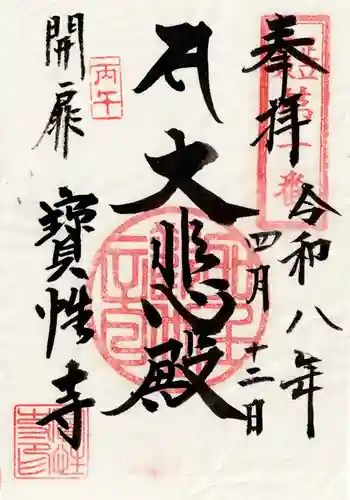 奉拝
令和八年
四月十二日
大悲殿
開扉
丙午
寳性寺